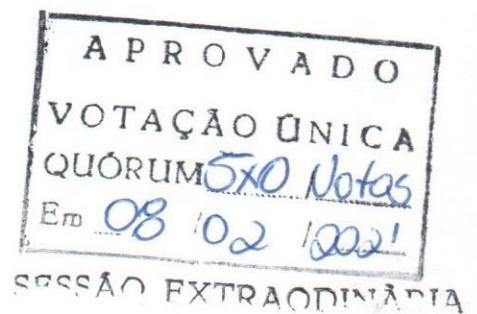 APROVADO
VOTAÇÃO ÚNICA
QUÓRUM 5x0 Votos
Em 08 / 02 / 2021
SESSÃO EXTRAODINÁRIA